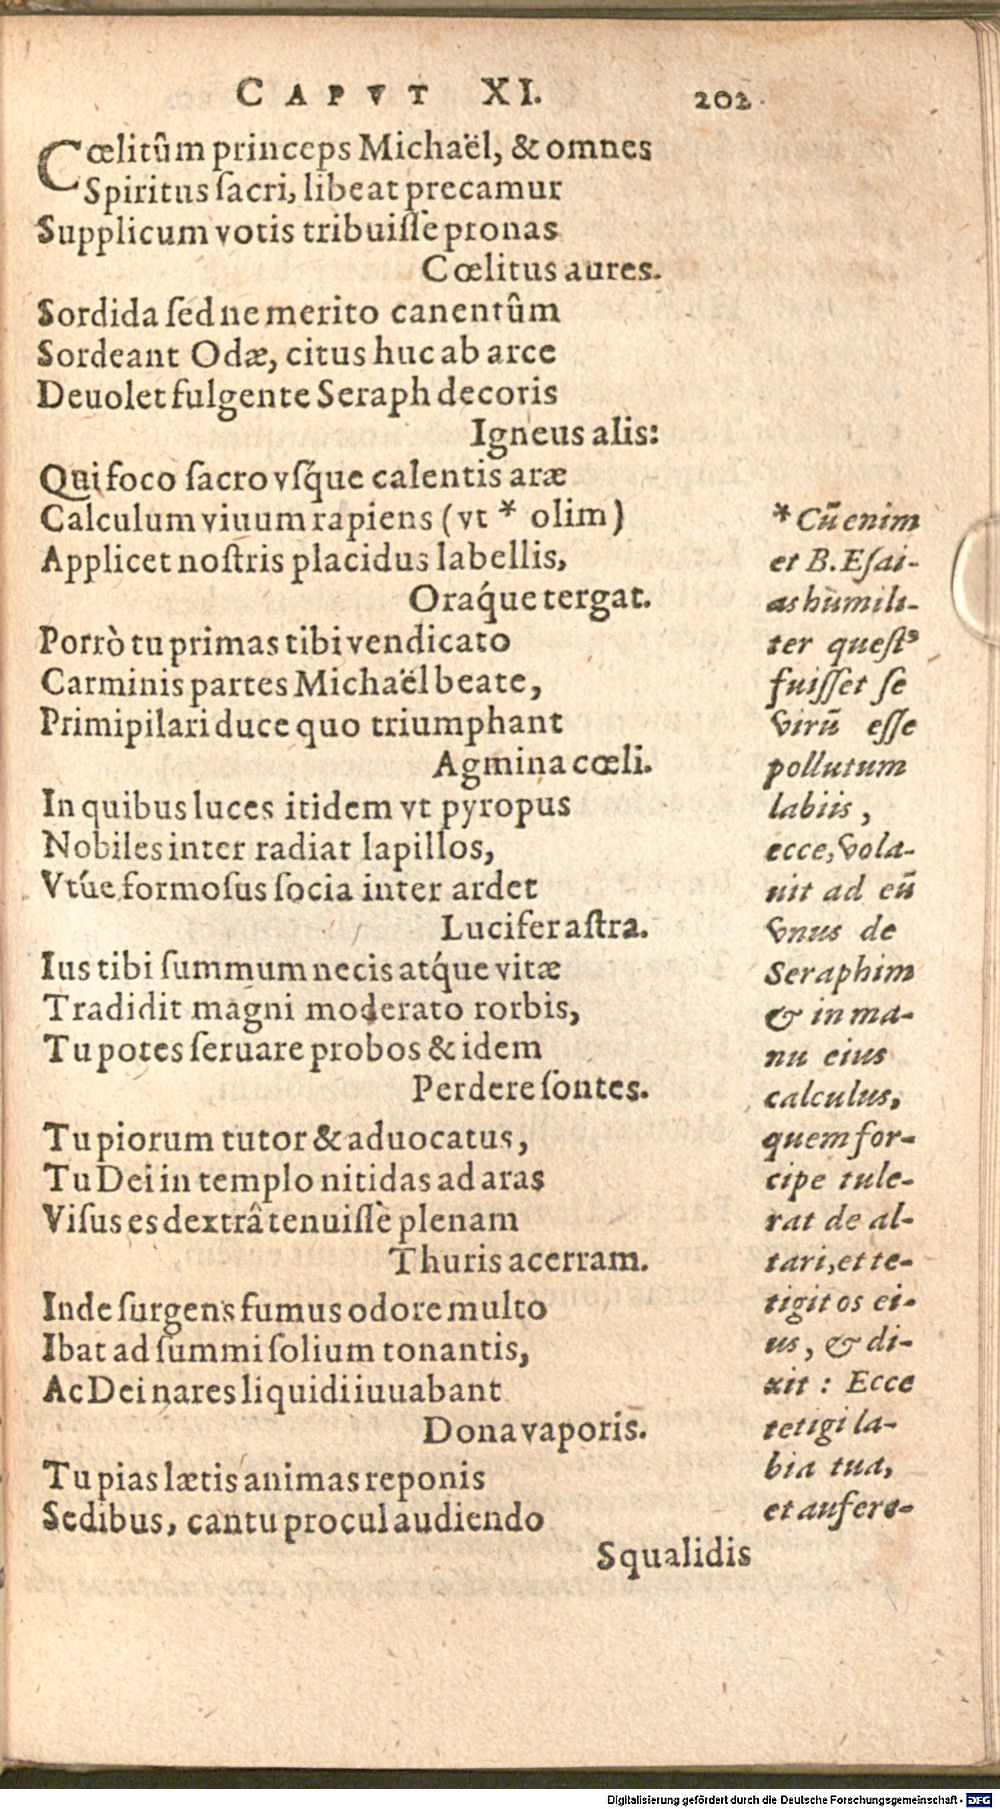 CAPVT XI. 202.
Cœlitûm princeps Michaël, & omnes
Spiritus ſacri, libeat precamur
Supplicum votis tribuiſſe pronas
Cœlitus aures.
Sordida ſed ne merito canentûm
Sordeant Odæ, citus huc ab arce
Deuolet fulgente Seraph decoris
Igneus alis:
Qui foco ſacro vſq́ue calentis aræ
Calculum viuum rapiens (vt * olim)
Applicet noſtris placidus labellis,
Oraq́ue tergat.
Porrò tu primas tibi vendicato
Carminis partes Michaël beate,
Primipilari duce quo triumphant
Agmina cœli.
In quibus luces itidem vt pyropus
Nobiles inter radiat lapillos,
Vtúe formoſus ſocia inter ardet
Lucifer aſtra.
Ius tibi ſummum necis atq́ue vitæ
Tradidit magni moderator orbis,
Tu potes ſeruare probos & idem
Perdere ſontes.
Tu piorum tutor & aduocatus,
Tu Dei in templo nitidas ad aras
Viſus es dextrâ tenuiſſe plenam
Thuris acerram.
Inde ſurgens fumus odore multo
Ibat ad ſummi ſolium tonantis,
Ac Dei nares liquidi iuuabant
Dona vaporis.
Tu pias lætis animas reponis
Sedibus, cantu procul audiendo
Squalidis
* Cū enim
et B. Eſai-
as humili-
ter queſtꝰ
fuiſſet ſe
virū eſſe
pollutum
labiis,
ecce, vola-
uit ad eū
vnus de
Seraphim
& in ma-
nu eius
calculus,
quem for-
cipe tule-
rat de al-
tari, et te-
tigit os ei-
us, & di-
xit: Ecce
tetigi la-
bia tua,
et aufere-
Digitalisierung gefördert durch die Deutsche Forschungsgemeinschaft - DFG